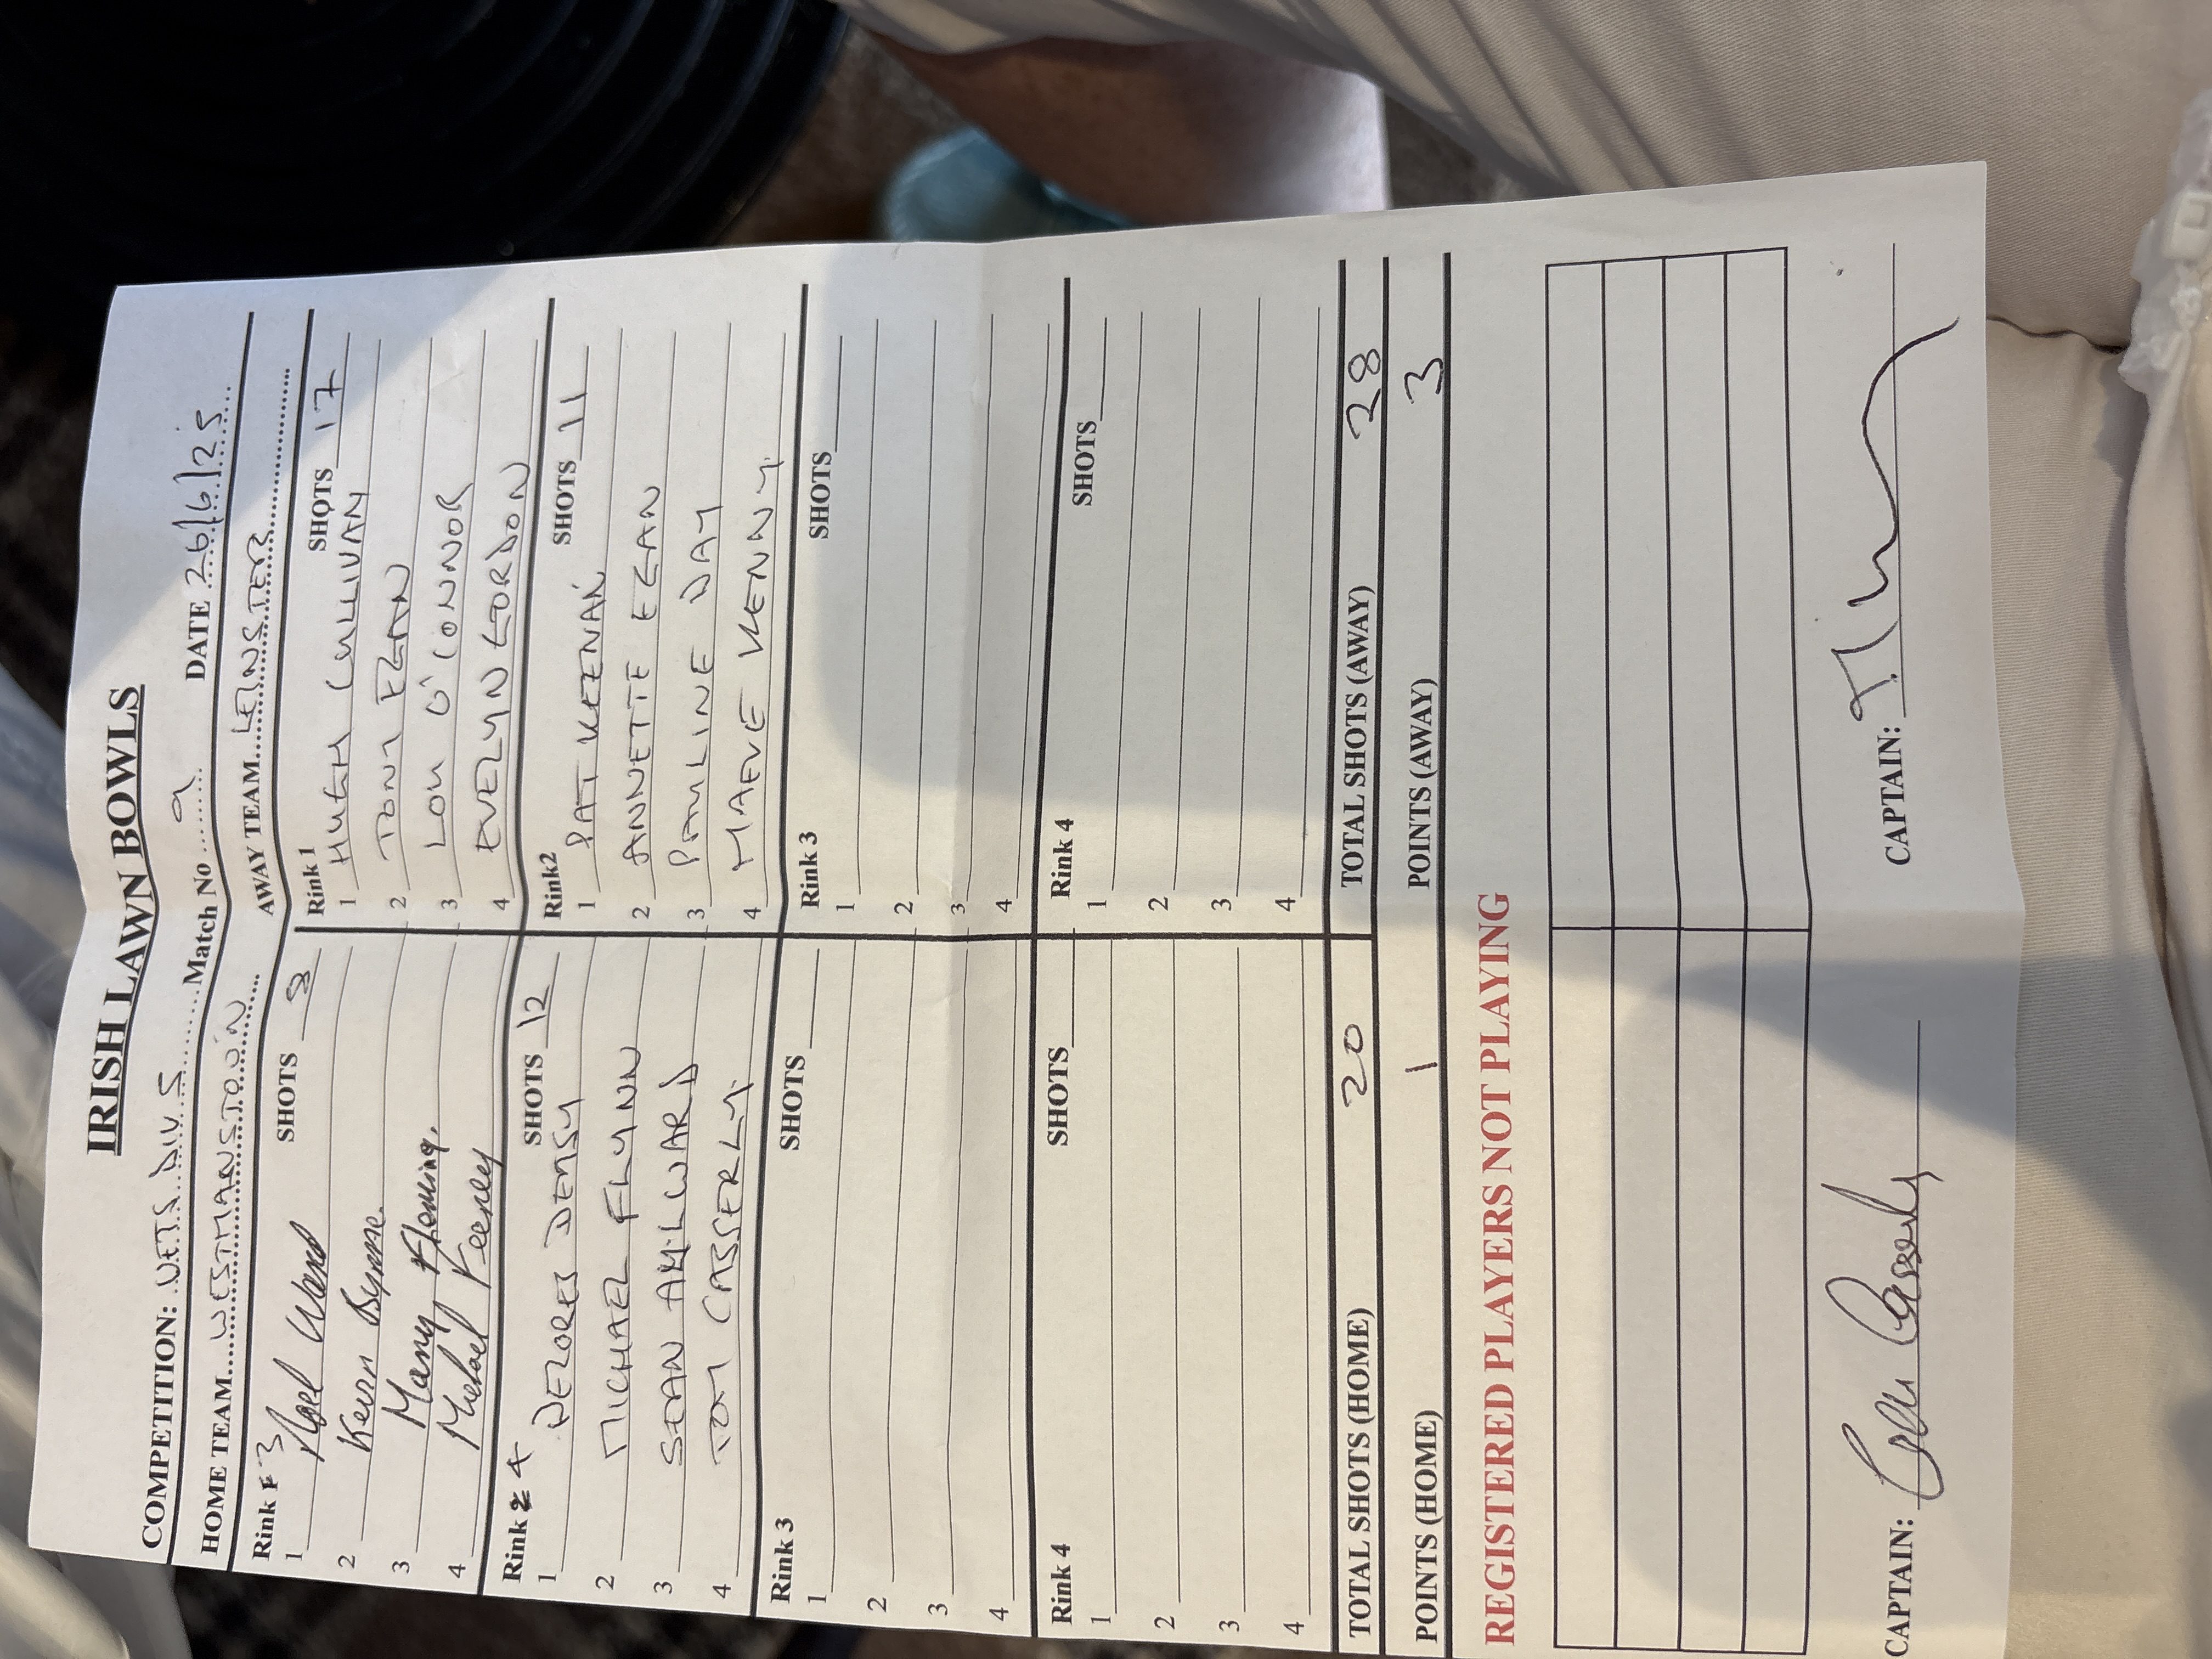 IRISH LAWN BOWLS
COMPETITION: VETS DIV 5 Match No 9 DATE 26/6/25
HOME TEAM WESTMANSTOWN AWAY TEAM LEINSTER
Rink 3 SHOTS 8 Rink 1 SHOTS 17
1 Noel Ward 1 HUGH CULLIVAN
2 Kevin Byrne 2 TONY EGAN
3 Many Fleming. 3 LOU O'CONNOR
4 Michael Feeney 4 EVELYN GORDON
Rink 4 SHOTS 12 Rink2 SHOTS 11
1 DELORES DEMSY 1 PAT KEENAN
2 MICHAEL FLYNN 2 ANNETTE EGAN
3 SEAN AYLWARD 3 PAULINE DAY
4 TOM CASSERLY. 4 MAEVE KENNY.
Rink 3 SHOTS Rink 3 SHOTS
1 1
2 2
3 3
4 4
Rink 4 SHOTS Rink 4 SHOTS
1 1
2 2
3 3
4 4
TOTAL SHOTS (HOME) 20 TOTAL SHOTS (AWAY) 28
POINTS (HOME) 1 POINTS (AWAY) 3
REGISTERED PLAYERS NOT PLAYING
CAPTAIN: CAPTAIN: